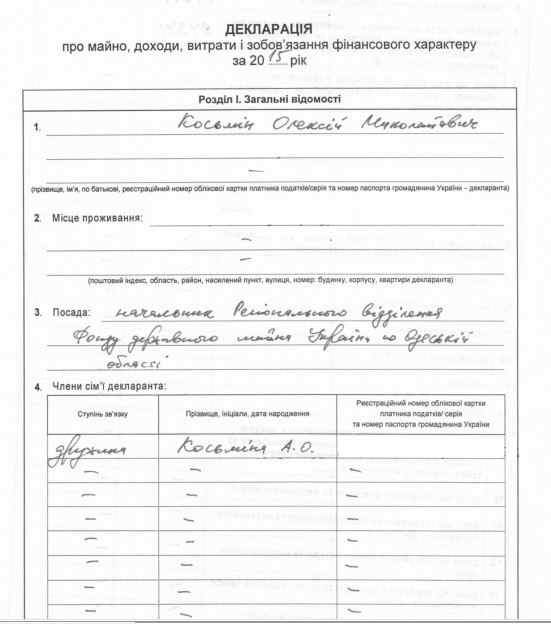 ДЕКЛАРАЦІЯ
про майно, доходи, витрати і зобов'язання фінансового характеру
за 20 15 рік
Розділ I. Загальні відомості
1. Косьмін Олексій Миколайович
—
(прізвище, ім'я, по батькові, реєстраційний номер облікової картки платника податків/серія та номер паспорта громадянина України – декларанта)
2. Місце проживання:
—
—
(поштовий індекс, область, район, населений пункт, вулиця, номер: будинку, корпусу, квартири декларанта)
3. Посада: начальник Регіонального відділення
Фонду державного майна України по Одеській
області
4. Члени сім'ї декларанта:
Ступінь зв'язку Прізвище, ініціали, дата народження Реєстраційний номер облікової картки
платника податків/ серія
та номер паспорта громадянина України
дружина Косьміна А.О.
— — —
— — —
— — —
— — —
— — —
— — —
— — —